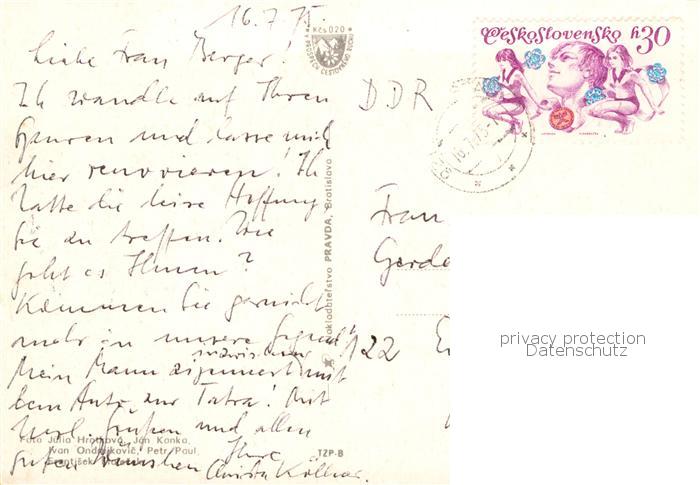 16.7.75.
Liebe Frau Berger!
Ich wandle auf Ihren
Spuren und lasse mich
hier renovieren! Ich
hatte die leise Hoffnung
Sie zu treffen. Wie
geht es Ihnen?
Kommen Sie gar nicht
mehr in unsere Gegend?
Mein Mann zigeunert inzwischen mit
dem Auto zur Tatra! Mit
herzl. Grüßen und allen
guten Wünschen Ihre
Foto Júlia Hrotková, Ján Konka,
Ivan Petr Paul,
František
TZP-B
Kčs 0,20
PRAVDA, Bratislava
Československo h 30
16.7.75
DDR
Frau
Gerda
122
privacy protection
Datenschutz